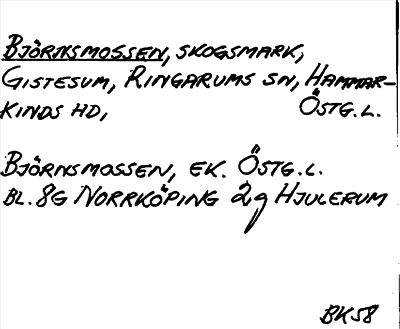 BJÖRNSMOSSEN, SKOGSMARK,
GISTESUM, RINGARUMS SN, HAMMAR-
KINDS HD, ÖSTG.L.
BJÖRNSMOSSEN, EK. ÖSTG.L.
BL. 8G NORRKÖPING 2g HJULERUM
BK58